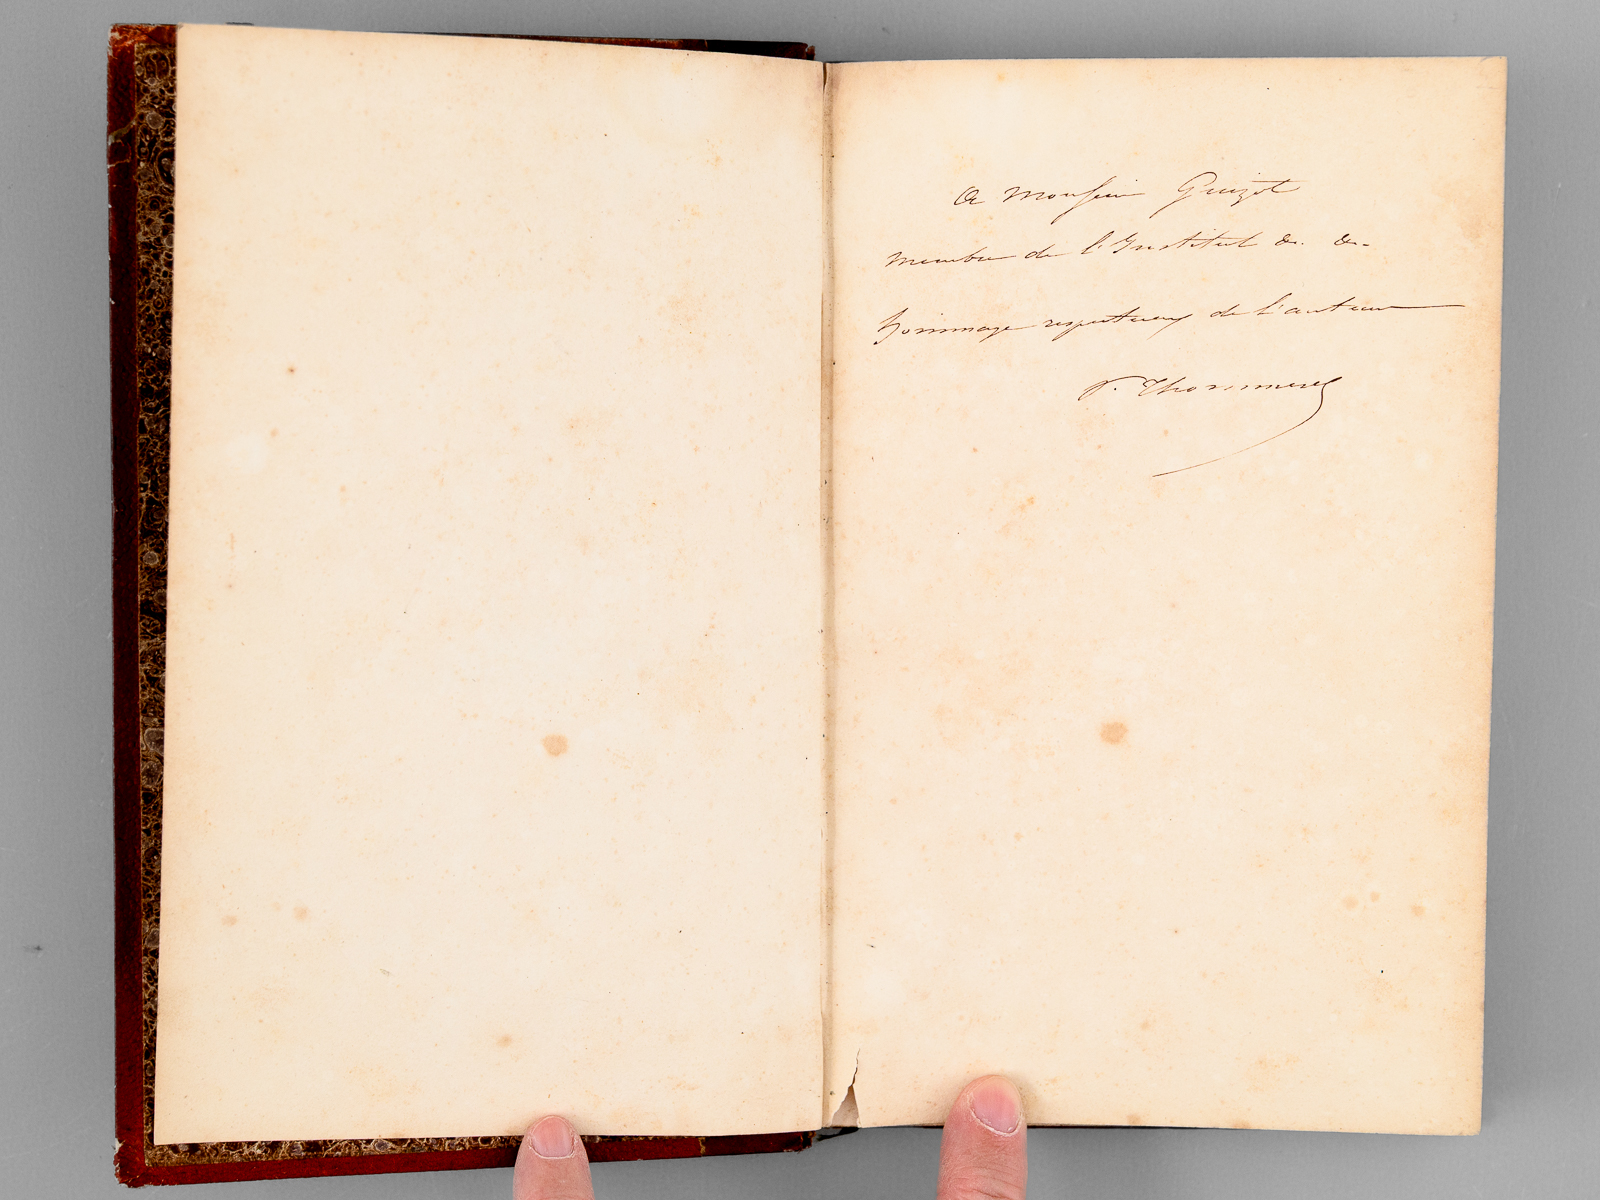 A Monsieur Guizot
Membre de l'Institut &. &.
hommage respectueux de l'auteur
Thommerel